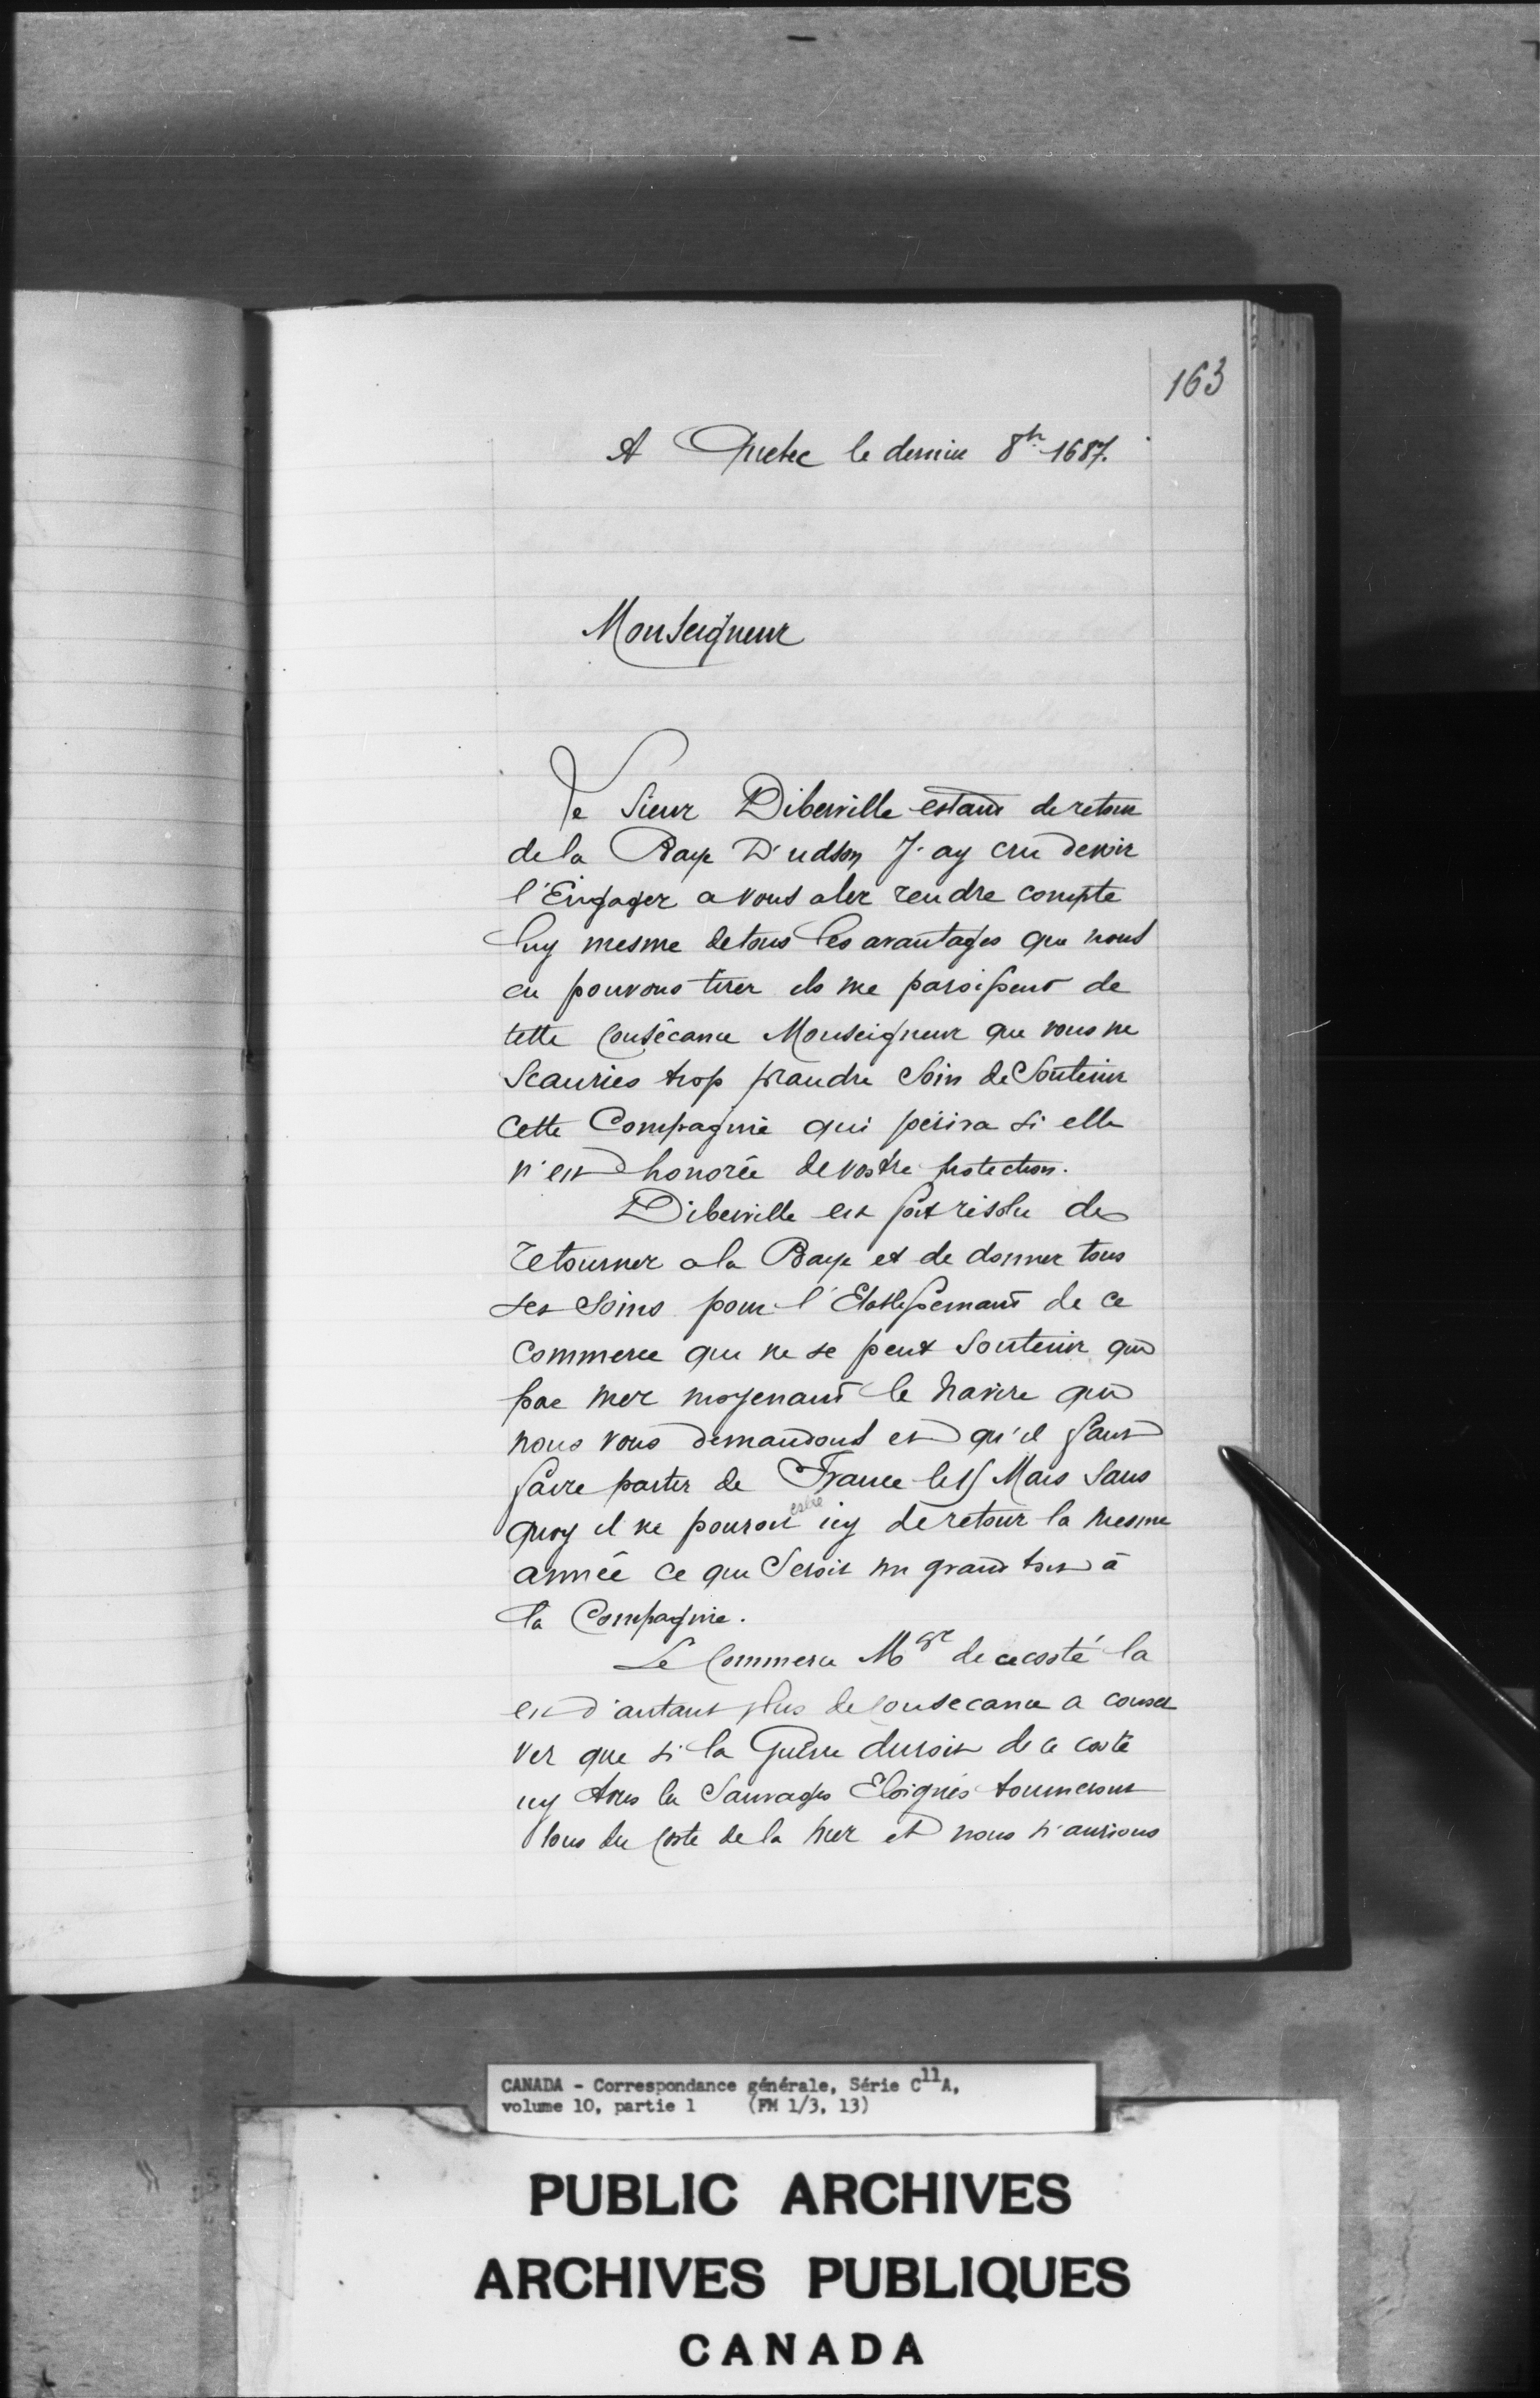 163
A Quebec le dernier 8bre 1687.
Monseigneur
Le Sieur Diberville estant de retour
de la Baye D'udson J'ay cru devoir
l'Engager a vous aler rendre compte
luy mesme de tous les avantages que nous
en pouvons tirer ils me paroissent de
telle consécance Monseigneur que vous ne
scauries trop prandre soin de soutenir
cette Compagnie qui périra si elle
n'est honorée de vostre protection.
Diberville est fort résolu de
retourner a la Baye et de donner tous
ses soins pour l'Etablissemant de ce
commerce qui ne se peut soutenir que
par mer moyenant le navire que
nous vous demandons et qu'il faut
faire partir de France le 15 Mars sans
quoy il ne pouroit estre icy de retour la mesme
année ce qui seroit un grand tort à
la Compagnie.
Le Commerce Mgr de ce costé la
est d'autant plus de consecance a conser
ver que si la Guerre duroit de ce costé
icy tous les Sauvages Eloignés tourneront
tous du costé de la mer et nous n'aurions
CANADA - Correspondance générale, Série C11A,
volume 10, partie 1 (FM 1/3, 13)
PUBLIC ARCHIVES
ARCHIVES PUBLIQUES
CANADA